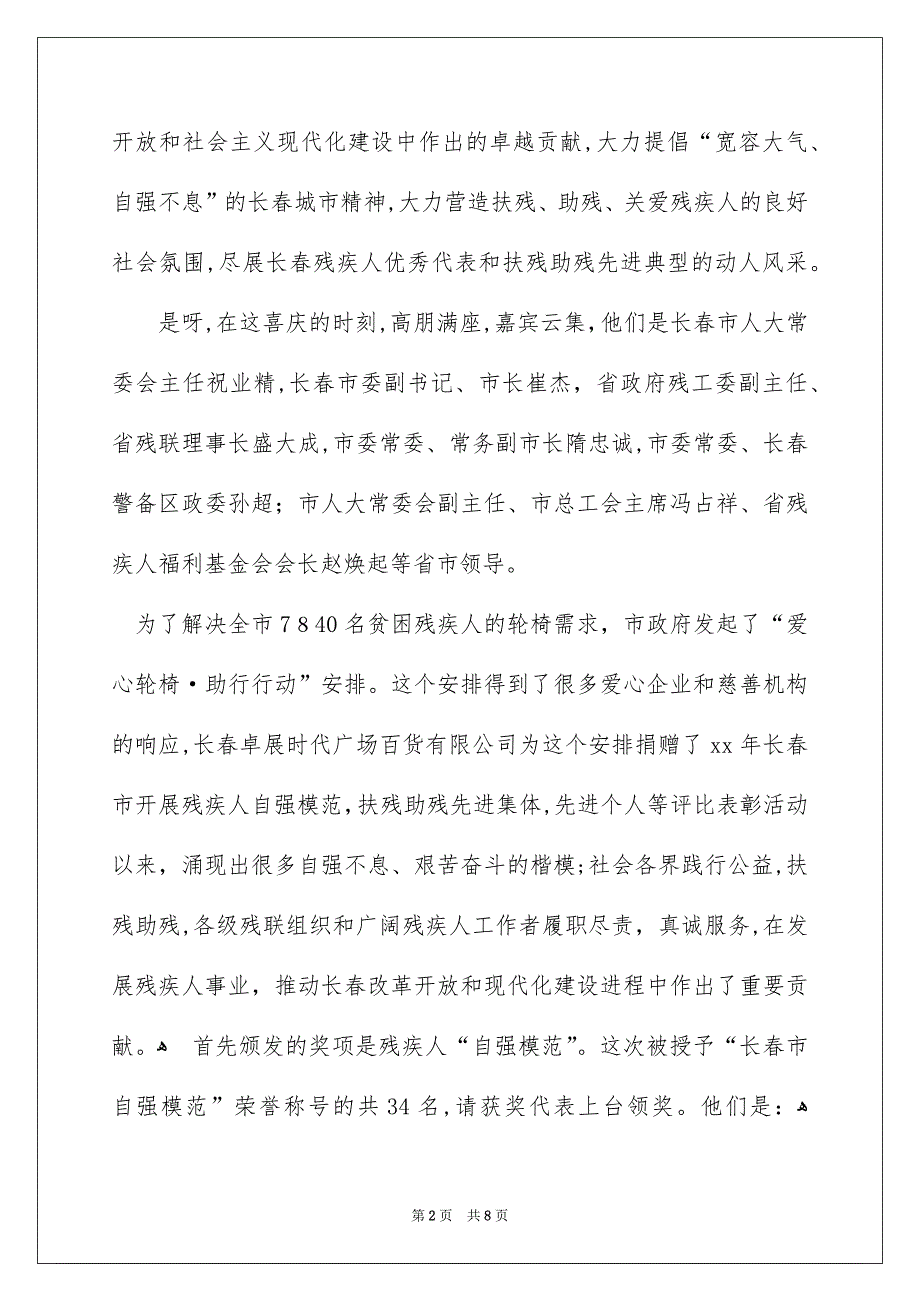 开放和社会主义现代化建设中作出的卓越贡献,大力提倡“宽容大气、
自强不息”的长春城市精神,大力营造扶残、助残、关爱残疾人的良好
社会氛围,尽展长春残疾人优秀代表和扶残助残先进典型的动人风采。
是呀,在这喜庆的时刻,高朋满座,嘉宾云集，他们是长春市人大常
委会主任祝业精,长春市委副书记、市长崔杰，省政府残工委副主任、
省残联理事长盛大成,市委常委、常务副市长隋忠诚,市委常委、长春
警备区政委孙超；市人大常委会副主任、市总工会主席冯占祥、省残
疾人福利基金会会长赵焕起等省市领导。
为了解决全市7840名贫困残疾人的轮椅需求，市政府发起了“爱
心轮椅·助行行动”安排。这个安排得到了很多爱心企业和慈善机构
的响应,长春卓展时代广场百货有限公司为这个安排捐赠了xx年长春
市开展残疾人自强模范,扶残助残先进集体,先进个人等评比表彰活动
以来，涌现出很多自强不息、艰苦奋斗的楷模;社会各界践行公益,扶
残助残,各级残联组织和广阔残疾人工作者履职尽责，真诚服务,在发
展残疾人事业，推动长春改革开放和现代化建设进程中作出了重要贡
献。ﻫ 首先颁发的奖项是残疾人“自强模范”。这次被授予“长春市
自强模范”荣誉称号的共34名,请获奖代表上台领奖。他们是：ﻫ
第2页 共8页